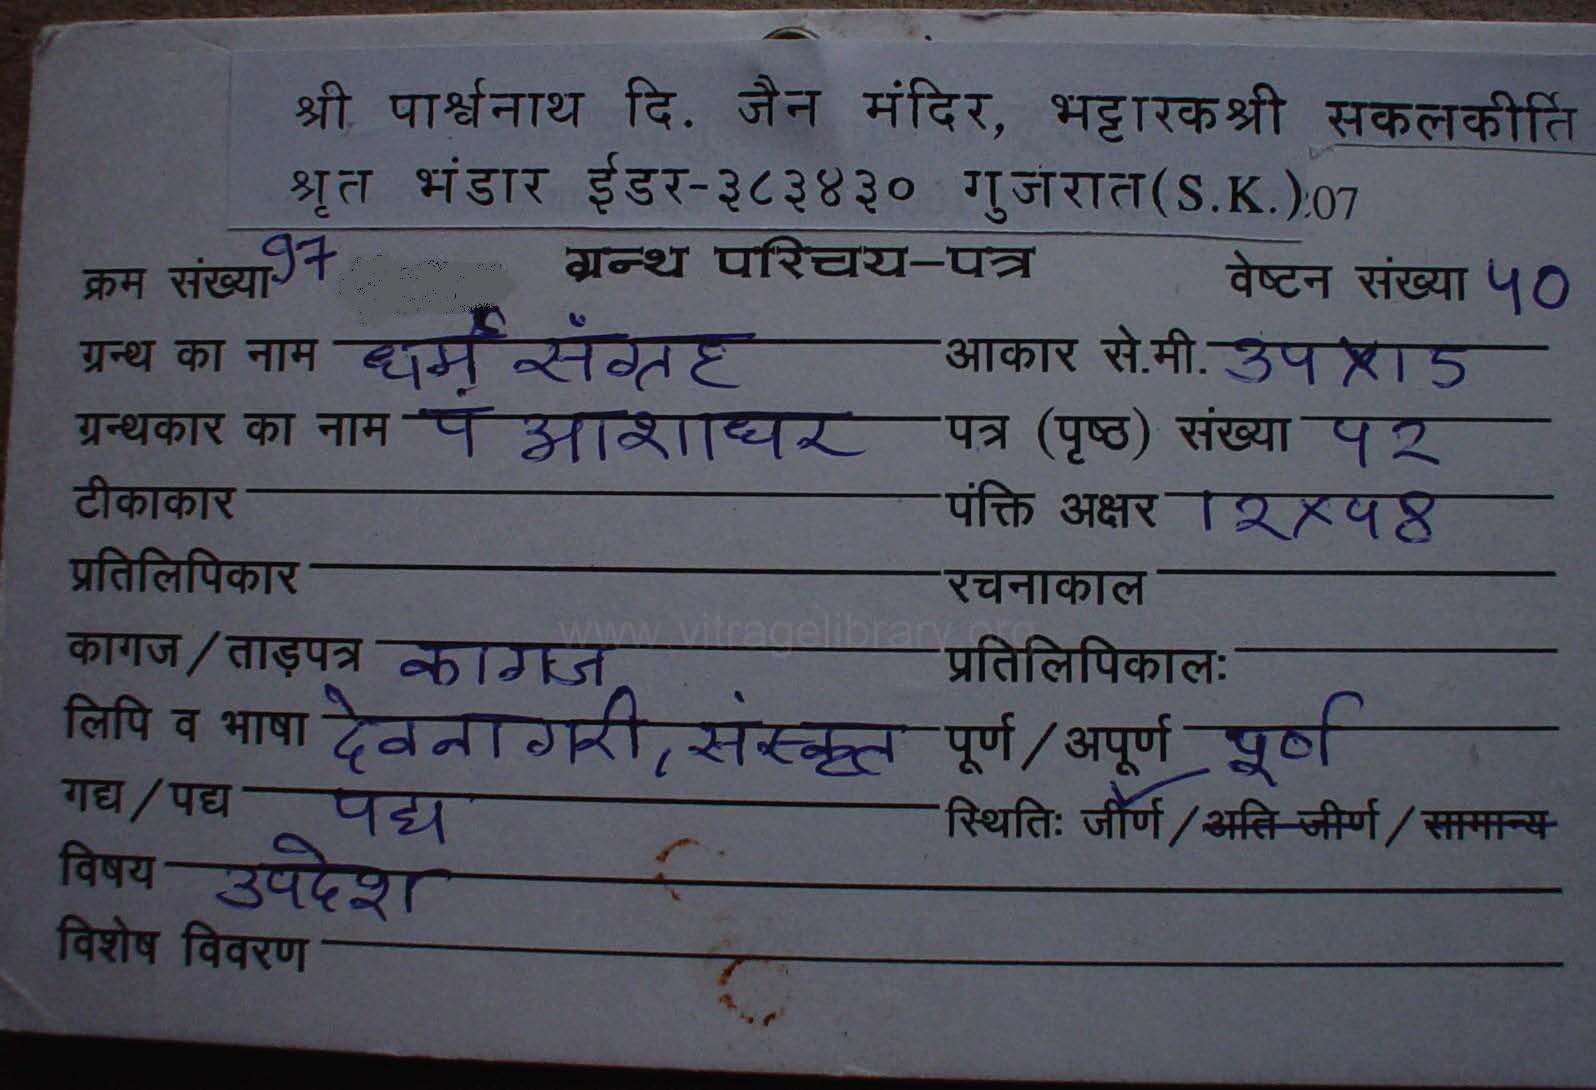 श्री पार्श्वनाथ दि. जैन मंदिर, भट्टारकश्री सकलकीर्ति
श्रृत भंडार ईडर-३८३४३० गुजरात(S.K.):07
क्रम संख्या 97 ग्रन्थ परिचय-पत्र वेष्टन संख्या ५०
ग्रन्थ का नाम धर्म संग्रह आकार से.मी.
ग्रन्थकार का नाम पं आशाधर पत्र (पृष्ठ) संख्या
टीकाकार पंक्ति अक्षर
प्रतिलिपिकार रचनाकाल
www.vitragelibrary.org
कागज/ताड़पत्र कागज प्रतिलिपिकालः
लिपि व भाषा देवनागरी, संस्कृत पूर्ण/अपूर्ण पूर्ण
गद्य/पद्य पद्य स्थितिः जीर्ण/अति जीर्ण/सामान्य
विषय उपदेश
विशेष विवरण